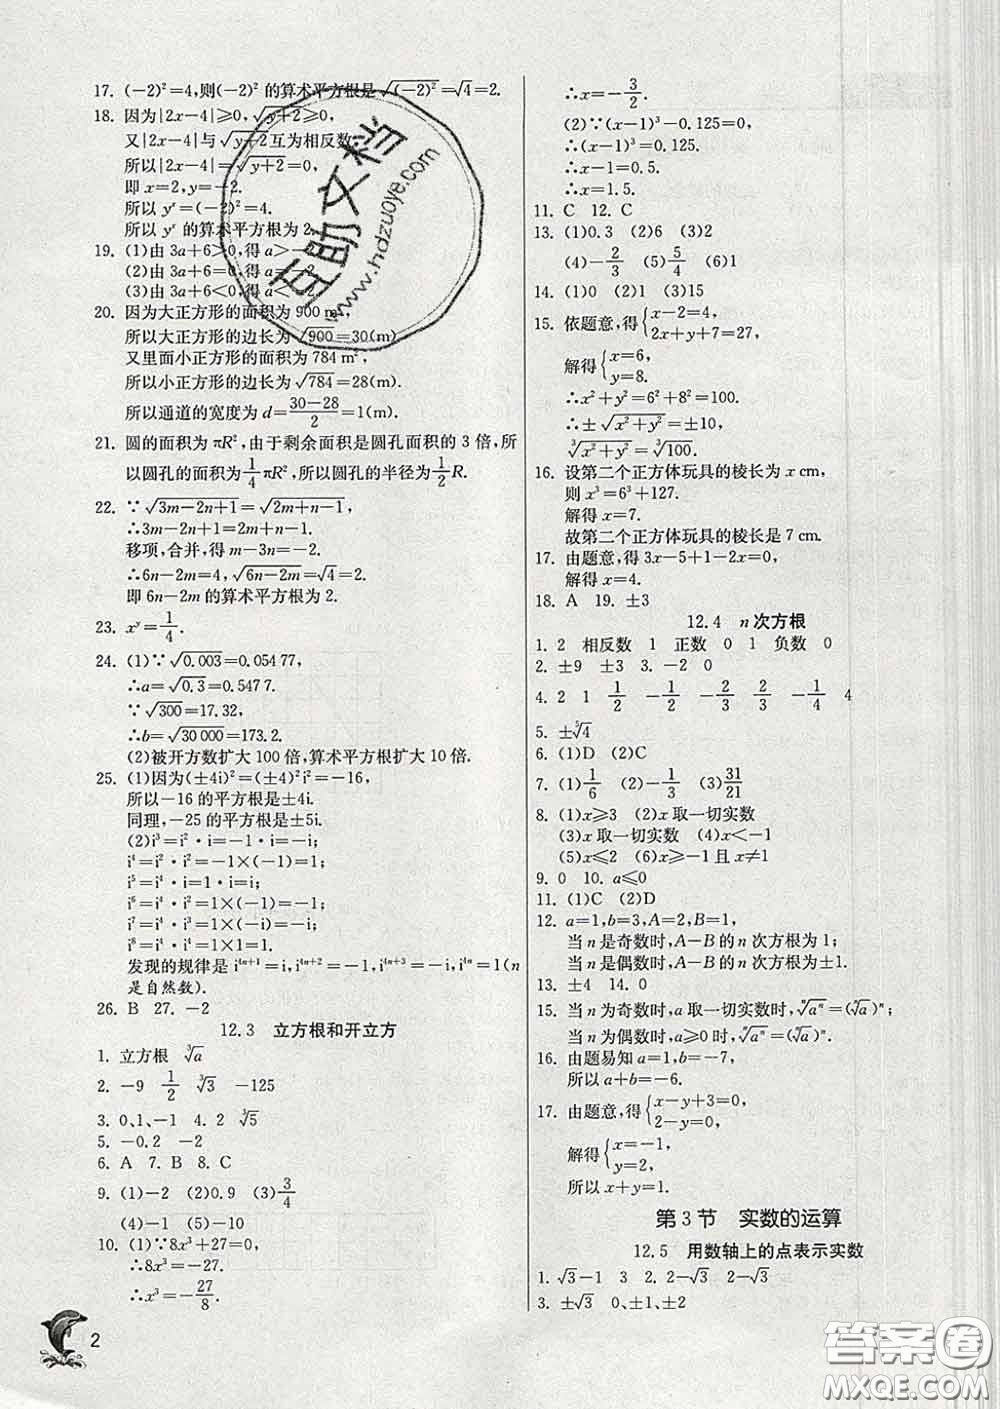 17. (-2)²=4,则(-2)² 的算术平方根是√(-2)²=√4=2.
18. 因为|2x-4|≥0,√y+2≥0,
又|2x-4|与√y+2互为相反数,
所以|2x-4|=√y+2=0,
即 x=2,y=-2.
所以 yˣ=(-2)²=4.
所以 yˣ 的算术平方根为 2.
19. (1)由 3a+6>0,得 a>-2.
(2)由 3a+6=0,得 a=-2.
(3)由 3a+6<0,得 a<-2.
20. 因为大正方形的面积为 900 m²,
所以大正方形的边长为√900=30(m).
又里面小正方形的面积为 784 m²,
所以小正方形的边长为√784=28(m).
所以通道的宽度为 d=(30-28)/2=1(m).
21. 圆的面积为 πR²,由于剩余面积是圆孔面积的 3 倍,所
以圆孔的面积为1/4πR²,所以圆孔的半径为1/2R.
22. ∵√3m-2n+1=√2m+n-1,
∴3m-2n+1=2m+n-1.
移项,合并,得 m-3n=-2.
∴6n-2m=4,√6n-2m=√4=2.
即 6n-2m 的算术平方根为 2.
23. xʸ=1/4.
24. (1)∵√0.003=0.054 77,
∴a=√0.3=0.547 7.
∵√300=17.32,
∴b=√30 000=173.2.
(2)被开方数扩大 100 倍,算术平方根扩大 10 倍.
25. (1)因为(±4i)²=(±4)²i²=-16,
所以-16 的平方根是±4i.
同理,-25 的平方根是±5i.
(2)i³=i²·i=-1·i=-i;
i⁴=i²·i²=-1×(-1)=1;
i⁵=i⁴·i=1·i=i;
i⁶=i⁴·i²=1×(-1)=-1;
i⁷=i⁴·i³=1×(-i)=-i;
i⁸=i⁴·i⁴=1×1=1.
发现的规律是 i⁴ⁿ⁺¹=i,i⁴ⁿ⁺²=-1,i⁴ⁿ⁺³=-i,i⁴ⁿ=1(n
是自然数).
26. B 27. -2
12.3 立方根和开立方
1. 立方根 ³√a
2. -9 1/2 ³√3 -125
3. 0、1、-1 4. 2 ³√5
5. -0.2 -2
6. A 7. B 8. C
9. (1)-2 (2)0.9 (3)3/4
(4)-1 (5)-10
10. (1)∵8x³+27=0,
∴8x³=-27.
∴x³=-27/8.
∴x=-3/2.
(2)∵(x-1)³-0.125=0,
∴(x-1)³=0.125.
∴x-1=0.5.
∴x=1.5.
11. C 12. C
13. (1)0.3 (2)6 (3)2
(4)-2/3 (5)5/4 (6)1
14. (1)0 (2)1 (3)15
15. 依题意,得{x-2=4,
2x+y+7=27,
解得{x=6,
y=8.
∴x²+y²=6²+8²=100.
∴±√x²+y²=±10,
³√x²+y²=³√100.
16. 设第二个正方体玩具的棱长为 x cm,
则 x³=6³+127.
解得 x=7.
故第二个正方体玩具的棱长是 7 cm.
17. 由题意,得 3x-5+1-2x=0,
解得 x=4.
18. A 19. ±3
12.4 n 次方根
1. 2 相反数 1 正数 0 1 负数 0
2. ±9 ±3 3. -2 0
4. 2 1 1/2 -1/2 -2/3 2/3 -1/4 4
5. ±⁵√4
6. (1)D (2)C
7. (1)1/6 (2)-1/3 (3)31/21
8. (1)x≥3 (2)x 取一切实数
(3)x 取一切实数 (4)x<-1
(5)x≤2 (6)x≥-1 且 x≠1
9. 0 10. a≤0
11. (1)C (2)D
12. a=1,b=3,A=2,B=1,
当 n 是奇数时,A-B 的 n 次方根为 1;
当 n 是偶数时,A-B 的 n 次方根为±1.
13. ±4 14. 0
15. 当 n 为奇数时,a 取一切实数时,ⁿ√aⁿ=(ⁿ√a)ⁿ;
当 n 为偶数时,a≥0 时,ⁿ√aⁿ=(ⁿ√a)ⁿ.
16. 由题易知 a=1,b=-7,
所以 a+b=-6.
17. 由题意,得{x-y+3=0,
2-y=0,
解得{x=-1,
y=2,
所以 x+y=1.
第 3 节 实数的运算
12.5 用数轴上的点表示实数
1. √3-1 3 2. 2-√3 2-√3
3. ±√3 0、±1、±2
2
互助文档
www.hdzuoye.com
答案圈
MXQE.COM